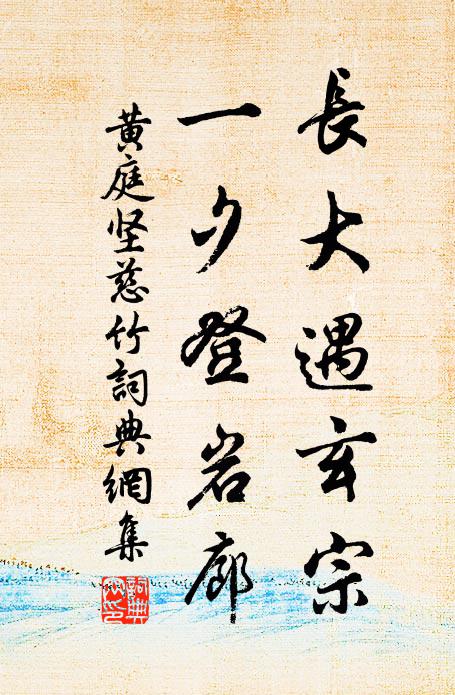 長大遇玄宗
一夕登岩廊
黄庭坚慈竹詞典網集